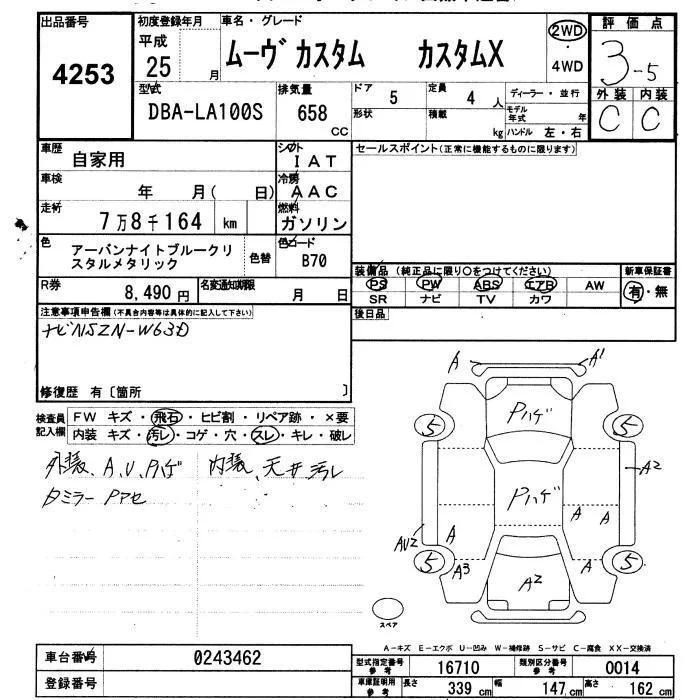 出品番号
4253
初度登録年月
平成
25 月
車名・グレード
ムーヴ カスタム カスタムX
2WD
4WD
評価点
3-5
外装 内装
C C
型式
DBA-LA100S
排気量
658
CC
ドア
5
定員
4 人
形状
積載
kg
ディーラー・並行
モデル
年式 年
ハンドル 左・右
車歴
自家用
シフト
IAT
セールスポイント(正常に機能するものに限ります)
車検
年 月( 日)
冷房
AAC
走行
7万8千164 km
燃料
ガソリン
色
アーバンナイトブルークリ
スタルメタリック
色替
色コード
B70
R券
8,490円
名変通知期限
月 日
装備品(純正品に限り○をつけてください)
PS PW ABS エアB AW
SR ナビ TV カワ
新車保証書
有・無
後日品
注意事項申告欄(不具合内容等は具体的に記入して下さい)
ナビNSZN-W63D
修復歴 有〔箇所 〕
検査員
記入欄
FW キズ・飛石・ヒビ割・リペア跡・×要
内装 キズ・汚レ・コゲ・穴・スレ・キレ・破レ
外装、A、U、Pハゲ 内装、天井汚レ
ミラー Pアセ
A A1
Pハゲ
5 5
Pハゲ
A2
A A A
AU2
5 5
A3 A
A2
スペア
A-キズ E-エクボ U-凹み W-補修跡 S-サビ C-腐食 XX-交換済
車台番号
0243462
登録番号
型式指定番号
参考
16710
類別区分番号
参考
0014
車庫証明用
参考
長さ 339 cm 幅 147 cm 高さ 162 cm